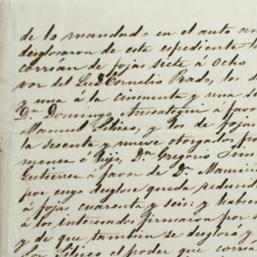 de lo mandado en el auto an
desglosaron de este espediente l
corrian de fojas siete á ocho
vor del Lcdo Cornelio Prado, los d
y una á la cincuenta y una s
Dn. Domingo á favor
Manuel y los de fojas
la sesenta y nueve otorgados po
menea é hijo, Dn. Gregorio Sim
Gutierrez á favor de Dn. Mauricio
por cuyo desglose queda redund
á fojas cuarenta y seis; y habien
á los interesados firmaron por s
y de que tambien se desglosó y
el poder que corria